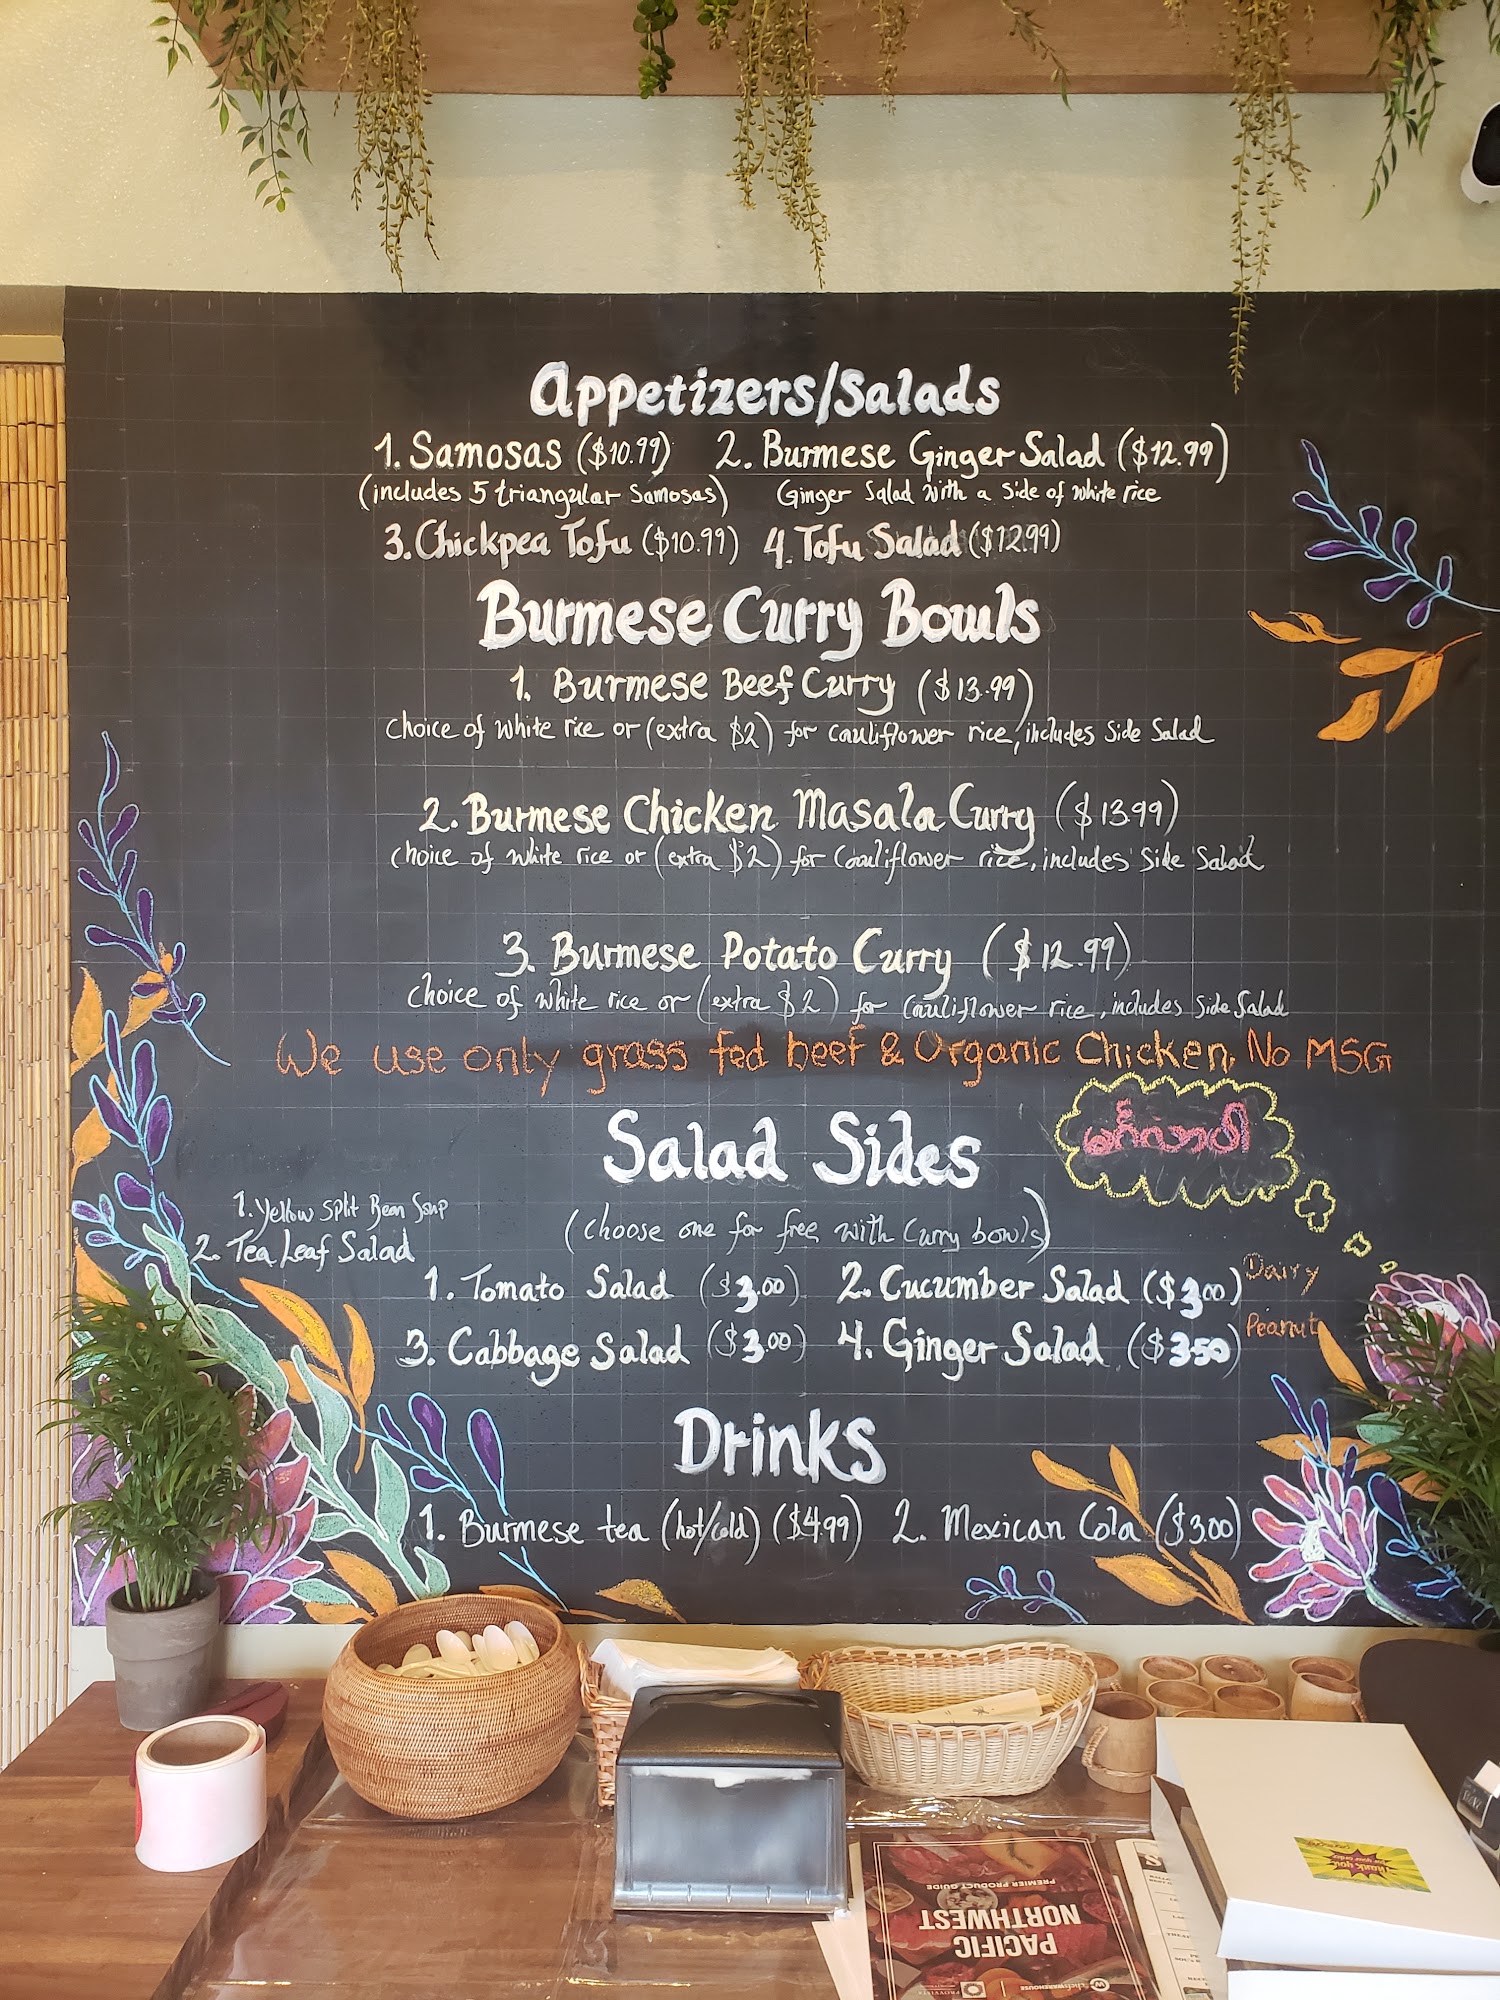 Appetizers/Salads
1. Samosas ($10.99) 2. Burmese Ginger Salad ($12.99)
(includes 5 triangular samosas) Ginger Salad with a side of white rice
3. Chickpea Tofu ($10.99) 4. Tofu Salad ($12.99)
Burmese Curry Bowls
1. Burmese Beef Curry ($13.99)
Choice of white rice or (extra $2) for cauliflower rice, includes Side Salad
2. Burmese Chicken Masala Curry ($13.99)
choice of white rice or (extra $2) for Cauliflower rice, includes Side Salad
3. Burmese Potato Curry ($12.99)
choice of white rice or (extra $2) for Cauliflower rice, includes Side Salad
We use only grass fed beef & Organic Chicken, No MSG
Salad Sides
မင်္ဂလာပါ
1. Yellow Split Bean Soup
2. Tea Leaf Salad
(choose one for free with Curry bowls)
1. Tomato Salad ($3.00) 2. Cucumber Salad ($3.00) Dairy
3. Cabbage Salad ($3.00) 4. Ginger Salad ($3.50) Peanut
Drinks
1. Burmese tea (hot/cold) ($4.99) 2. Mexican Cola ($3.00)
Thank you
for your order
PACIFIC
NORTHWEST
PREMIER PRODUCT GUIDE